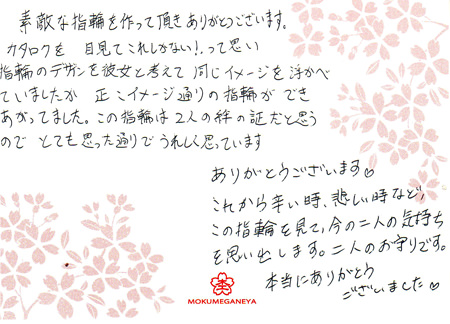 素敵な指輪を作って頂きありがとうございます。
カタログを 目見てこれしかない!って思い
指輪のデザンを彼女と考えて 同じイメージを浮かべ
ていましたが 正にイメージ通りの指輪が でき
あがってました。この指輪は2人の絆の証だと思う
ので とても思った通りで うれしく思っています
ありがとうございます♡
これから辛い時、悲しい時など、
この指輪を見て、今の二人の気持ち
を思い出します。二人のお守りです。
本当にありがとう
ございました♡
MOKUMEGANEYA